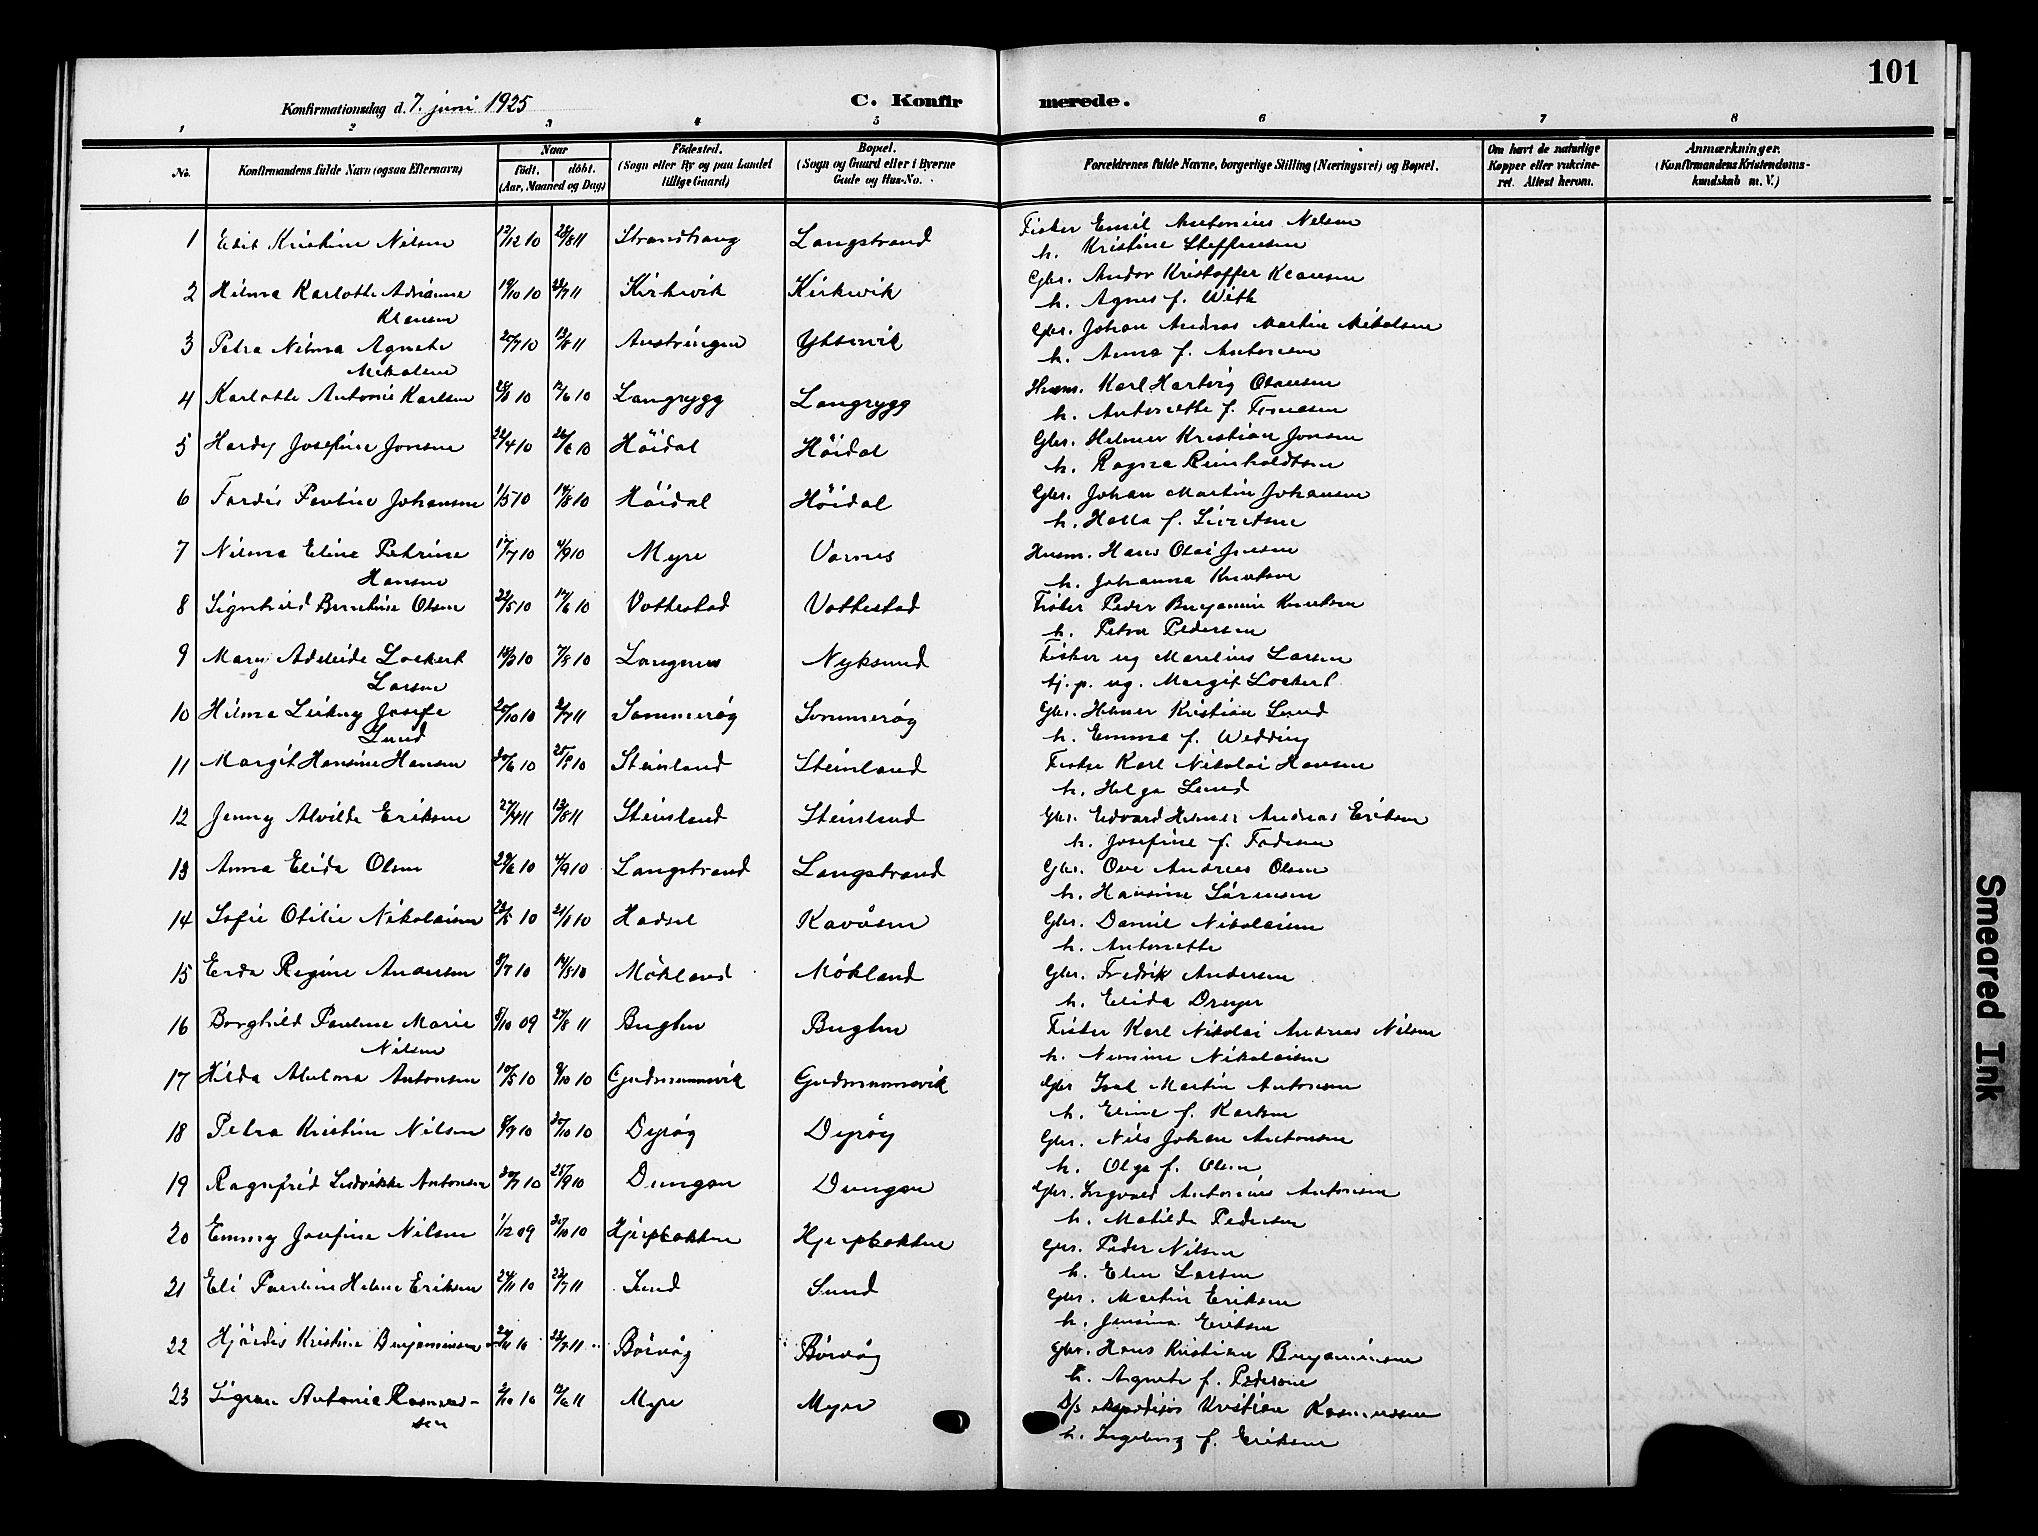 101
Konfirmationsdag d. 7. juni 1925
C. Konfirmerede.
1 2 3 4 5 6 7 8
No.
Konfirmandens fulde Navn (ogsaa Efternavn)
Naar
födt. döbt.
(Aar, Maaned og Dag)
Födested.
(Sogn eller By og paa Landet
tillige Gaard)
Bopæl.
(Sogn og Gaard eller i Byerne
Gade og Hus-No.
Forældrenes fulde Navne, borgerlige Stilling (Næringsvei) og Bopæl.
Om havt de naturlige
Kopper eller vakcine-
ret. Attest herom.
Anmærkninger.
(Konfirmandens Kristendoms-
kundskab m. V.)
1 Kristine Nilsen 12/12 10 28/8 11 Strandhaug Langstrand Fisker Emil Antonius Nilsen
h. Kristine Steffensen
2 Hilma Karlotte Adrianne 19/10 10 Kirkevik Kirkevik Gbr. Andor Kristoffer Klausen
Klausen h. Agnes f. With
3 Petra Nilma Agnete 13/8 11 Gbr. Johan Andreas Martin Nikolsen
h. Anna f. Antonsen
4 Karlotte Antonie Karlsen 12/6 10 Langrygg Langrygg Husm. Karl Hartvig Olausen
h. Antonette f.
5 Hardy Josefine Jonsen 22/4 10 26/6 10 Höidal Höidal Gbr. Helmer Kristian Jonsen
h. Ragna Reinholdtsen
6 Pauline Johansen 1/5 10 14/8 10 Höidal Höidal Gbr. Johan Martin Johansen
h. Halla f. Sivertsen
7 Nilma Eline Petrine 17/7 10 4/9 10 Myre Vornes Husm. Hans Olai Jensen
Hansen h. Johanna Knutsen
8 Signhild Berntine Olsen 22/5 10 12/6 10 Vottestad Vottestad Fisker Peder Benjamin Knutsen
h. Petra Pedersen
9 Mary Adeleide Lockert 7/8 10 Langnes Nyksund Fisker ug Marelius Larsen
Larsen tj. p. ug. Margit Lockert
10 Hilma Leikny Josefe 25/10 10 2/7 11 Sommeröy Sommeröy Gbr. Helmer Kristian Lund
Lund h. Emma f. Wedding
11 Margit Hansine Hansen 30/6 10 Steinland Steinland Fisker Karl Nikolai Hansen
h. Helga Lund
12 Jenny Alvilde Eriksen 27/4 11 13/8 11 Steinland Steinland Gbr. Edvard Helmer Andreas Eriksen
h. Josefine f.
13 Anna Elida Olsen 29/6 10 4/9 10 Langstrand Langstrand Gbr. Ove Andreas Olsen
h. Hansine Sörensen
14 Sofie Otilie Nikolaisen 10 10 Hadsel Kavåsen Gbr. Daniel Nikolaisen
h. Antonette
15 Regine Andersen 8/7 10 14/8 10 Mökland Mökland Gbr. Fredrik Andersen
h. Elida Dreyer
16 Borghild Pauline Marie 8/10 09 27/8 11 Bugten Bugten Fisker Karl Nikolai Andreas Nilsen
Nilsen h. Nikolaisen
17 Hilda Antonsen 10/5 10 9/10 10 Gudmunnsvik Gudmunnsvik Gbr Martin Antonsen
h. Eline f. Karlsen
18 Petra Kristine Nilsen 8/9 10 30/10 10 Dyröy Dyröy Gbr. Nils Johan Antonsen
h. Olga f. Olsen
19 Ragnfrid Ludvikke Antonsen 30/7 10 25/9 10 Dungan Dungan Gbr. Antonius Antonsen
h. Matilde Pedersen
20 Emmy Josefine Nilsen 1/12 09 30/10 10 Gbr. Peder Nilsen
h. Elen Larsen
21 Eli Pauline Helene Eriksen 24/11 10 23/7 11 Sund Sund Gbr. Martin Eriksen
h. Jensina Eriksen
22 Hjördis Kristine Benjaminsen 10 23/7 11 Börøy Börøy Gbr. Hans Kristian Benjaminsen
h. Agnete f. Pedersen
23 Sigrun Antonia Rasmus- 2/10 10 12/6 11 Myre Myre D/S ekspeditör Kristian Rasmussen
sen h. Ingeborg f. Eriksen
Smeared Ink